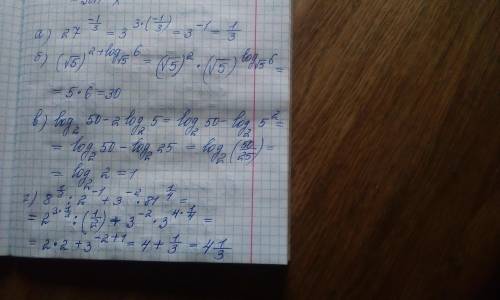 а) 27^{-1/3} = 3^{3·(-1/3)} = 3^{-1} = 1/3
б) (√5)^{2+log_{√5}6} = (√5)^2 · (√5)^{log_{√5}6} =
= 5·6 = 30
в) log_2 50 - 2 log_2 5 = log_2 50 - log_2 5^2 =
= log_2 50 - log_2 25 = log_2 (50/25) =
= log_2 2 = 1
г) 8^{1/3} : 2^{-1} + 3^{-2} · 81^{1/4} =
= 2^{3·1/3} : (1/2) + 3^{-2} · 3^{4·1/4} =
= 2·2 + 3^{-2+1} = 4 + 1/3 = 4 1/3